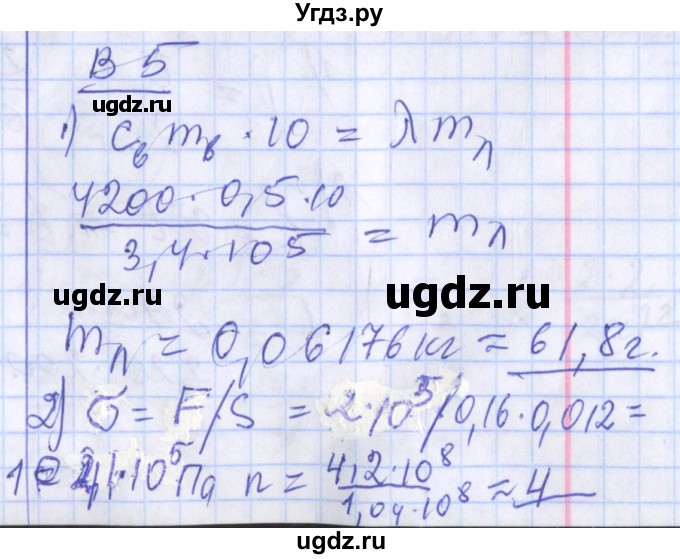 Угдз.ру
В 5
ugdz.ru
1) cв mв · 10 = λ mл
4200 · 0,5 · 10
3,4 · 10 5 = mл
ugdz.ru
ugdz.ru
mл = 0,06176 кг = 61,8 г.
2) σ = F/S = 2·10⁵/0,16·0,012 =
10⁵ Па n = 4,2·10⁸
1,04·10⁸ ≈ 4
ugdz.ru
ugdz.ru